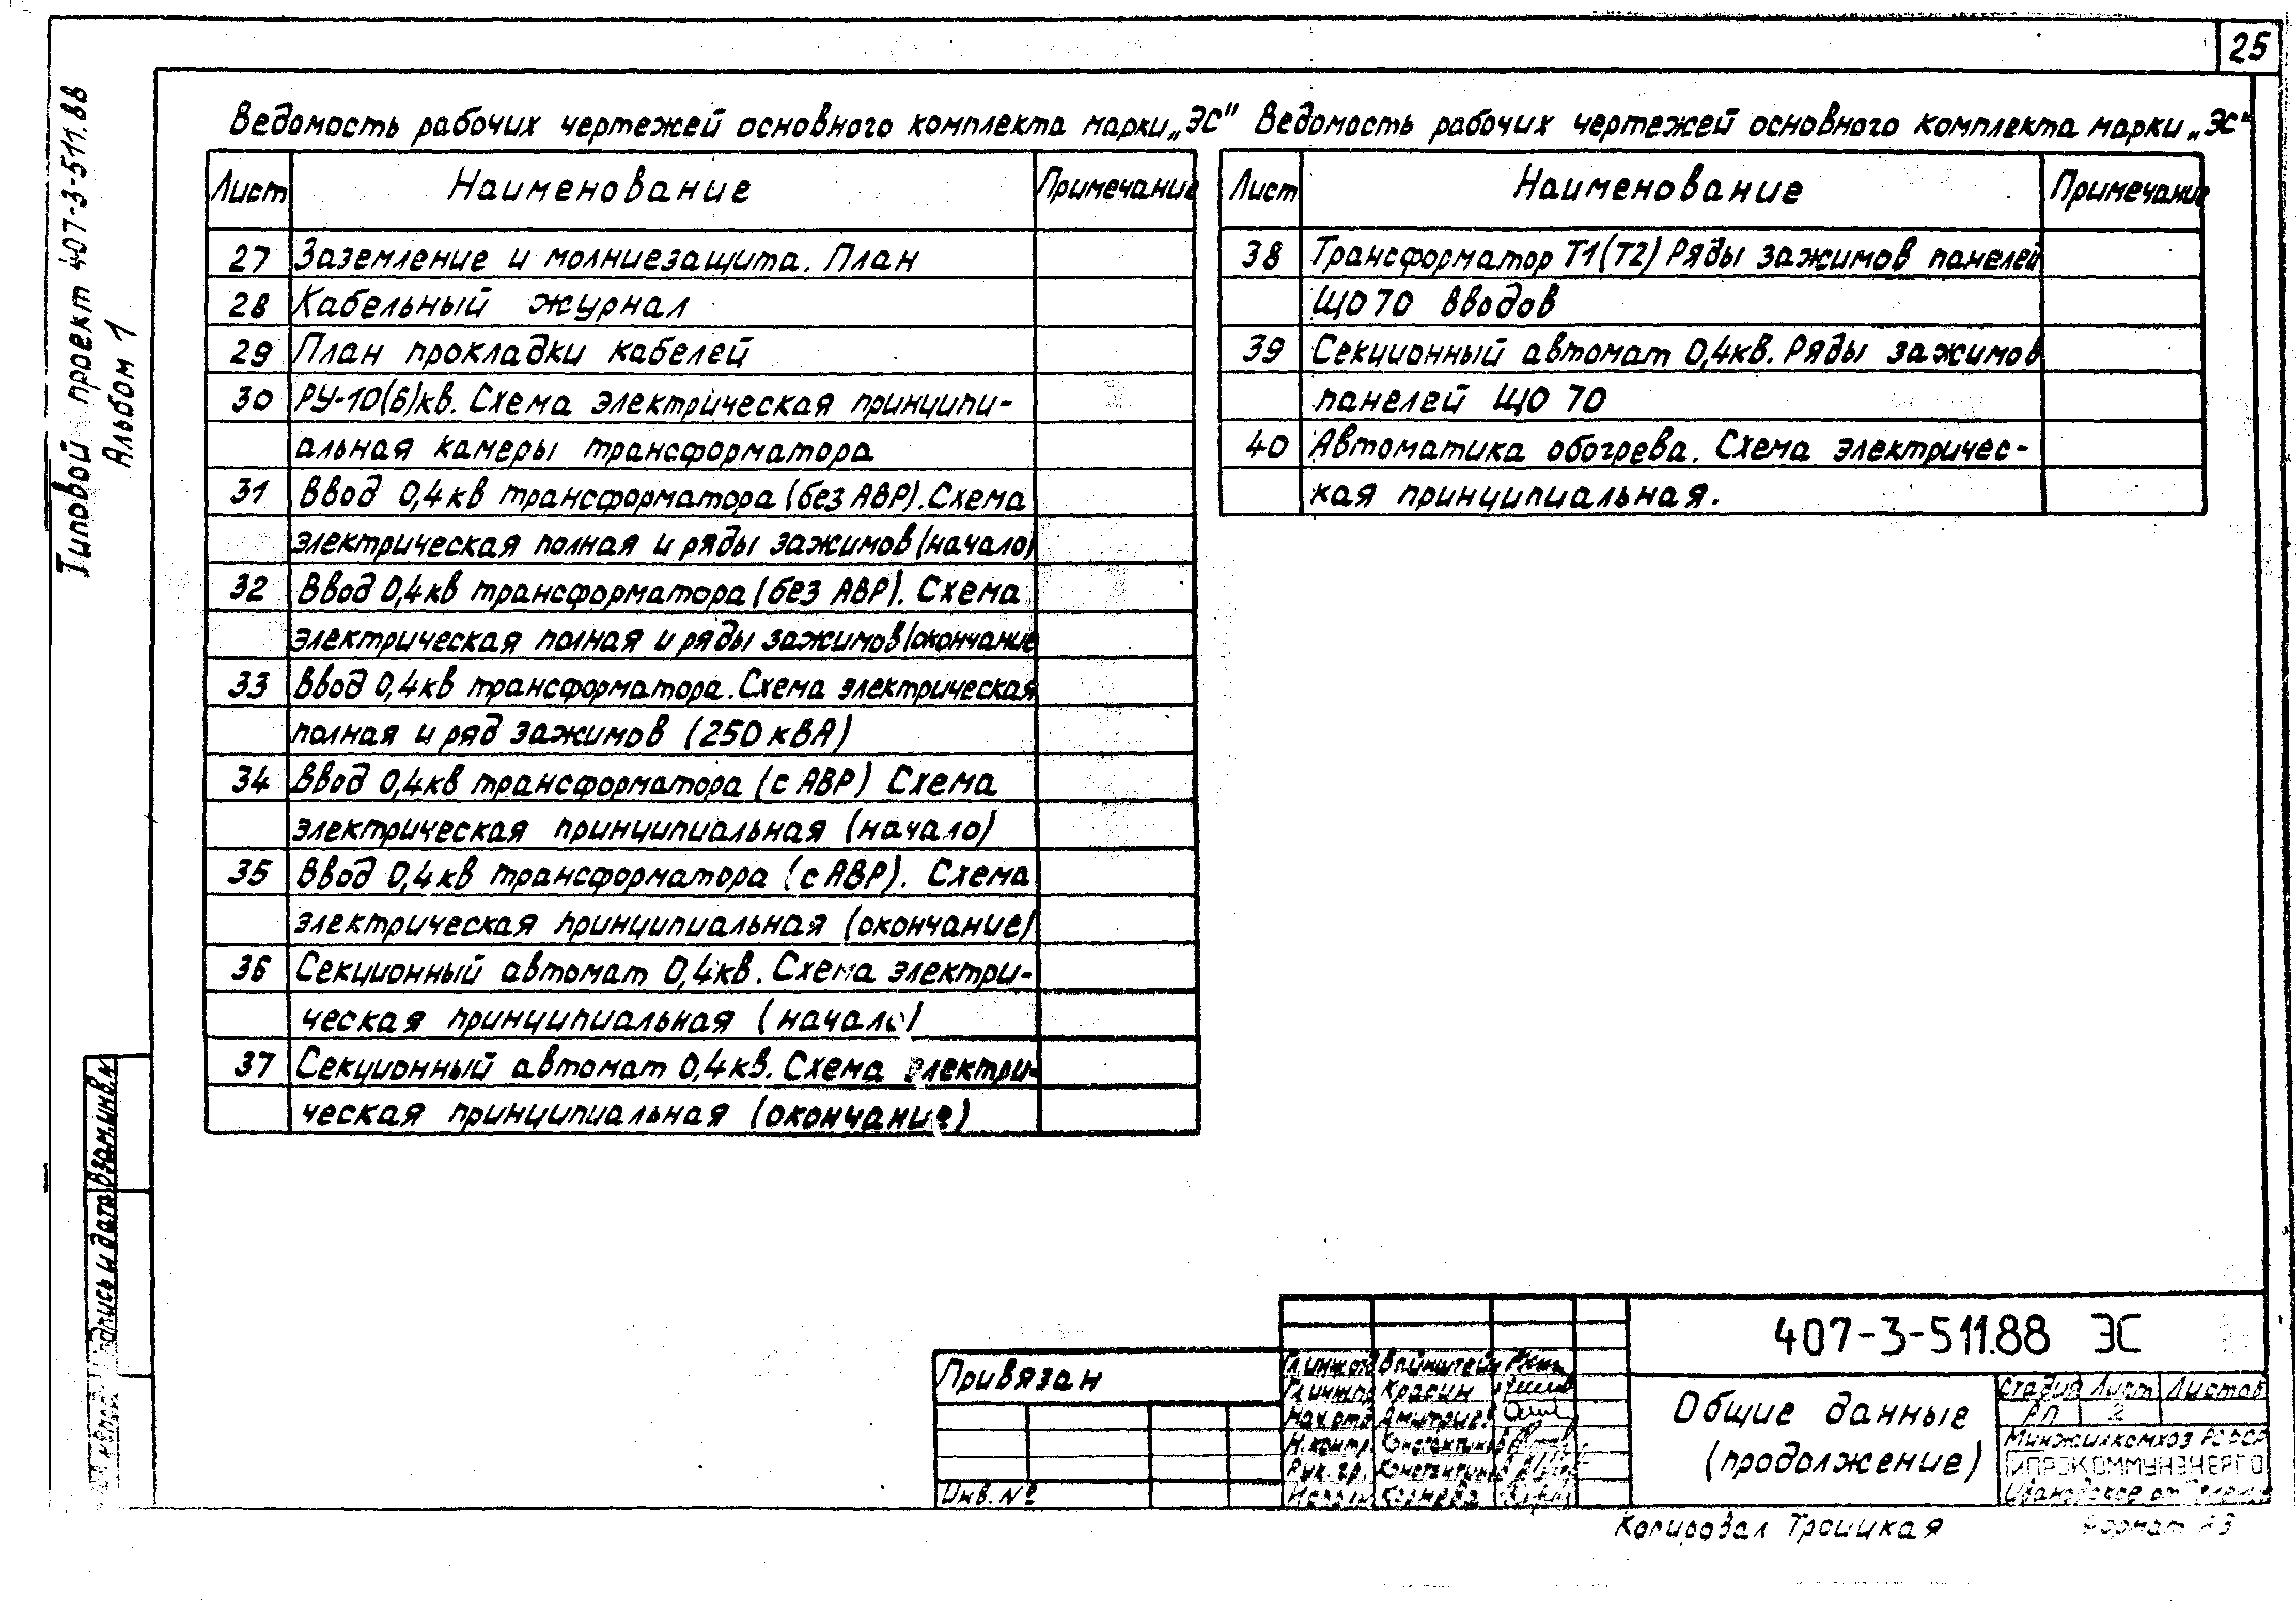 25
Типовой проект 407-3-511.88
Альбом 1
Ведомость рабочих чертежей основного комплекта марки „ЭС"
Лист Наименование Примечание
27 Заземление и молниезащита. План
28 Кабельный журнал
29 План прокладки кабелей
30 РУ-10(6)кв. Схема электрическая принципи-
альная камеры трансформатора
31 Ввод 0,4кв трансформатора (без АВР). Схема
электрическая полная и ряды зажимов (начало)
32 Ввод 0,4кв трансформатора (без АВР). Схема
электрическая полная и ряды зажимов (окончание
33 Ввод 0,4кв трансформатора. Схема электрическая
полная и ряд зажимов (250 кВА)
34 Ввод 0,4кв трансформатора (с АВР) Схема
электрическая принципиальная (начало)
35 Ввод 0,4кв трансформатора (с АВР). Схема
электрическая принципиальная (окончание)
36 Секционный автомат 0,4кв. Схема электри-
ческая принципиальная (начало)
37 Секционный автомат 0,4кв. Схема электри-
ческая принципиальная (окончание)
Ведомость рабочих чертежей основного комплекта марки „ЭС"
Лист Наименование Примечание
38 Трансформатор Т1(Т2) Ряды зажимов панелей
ЩО 70 вводов
39 Секционный автомат 0,4кв. Ряды зажимов
панелей ЩО 70
40 Автоматика обогрева. Схема электричес-
кая принципиальная.
Взам.инв.№
подпись и дата
Привязан
Инв. №
Гл.инж.отд Вайнштейн
Гл.инж.пр Красин
Нач.отд Дмитриев
Н.контр. Константинов
Рук. гр. Константинов
Кознева
407-3-511.88 ЭС
Общие данные
(продолжение)
Стадия Лист Листов
РП 2
Минжилкомхоз РСФСР
ГИПРОКОММУНЭНЕРГО
Ивановское отделение
Копировал Троицкая
Формат А3